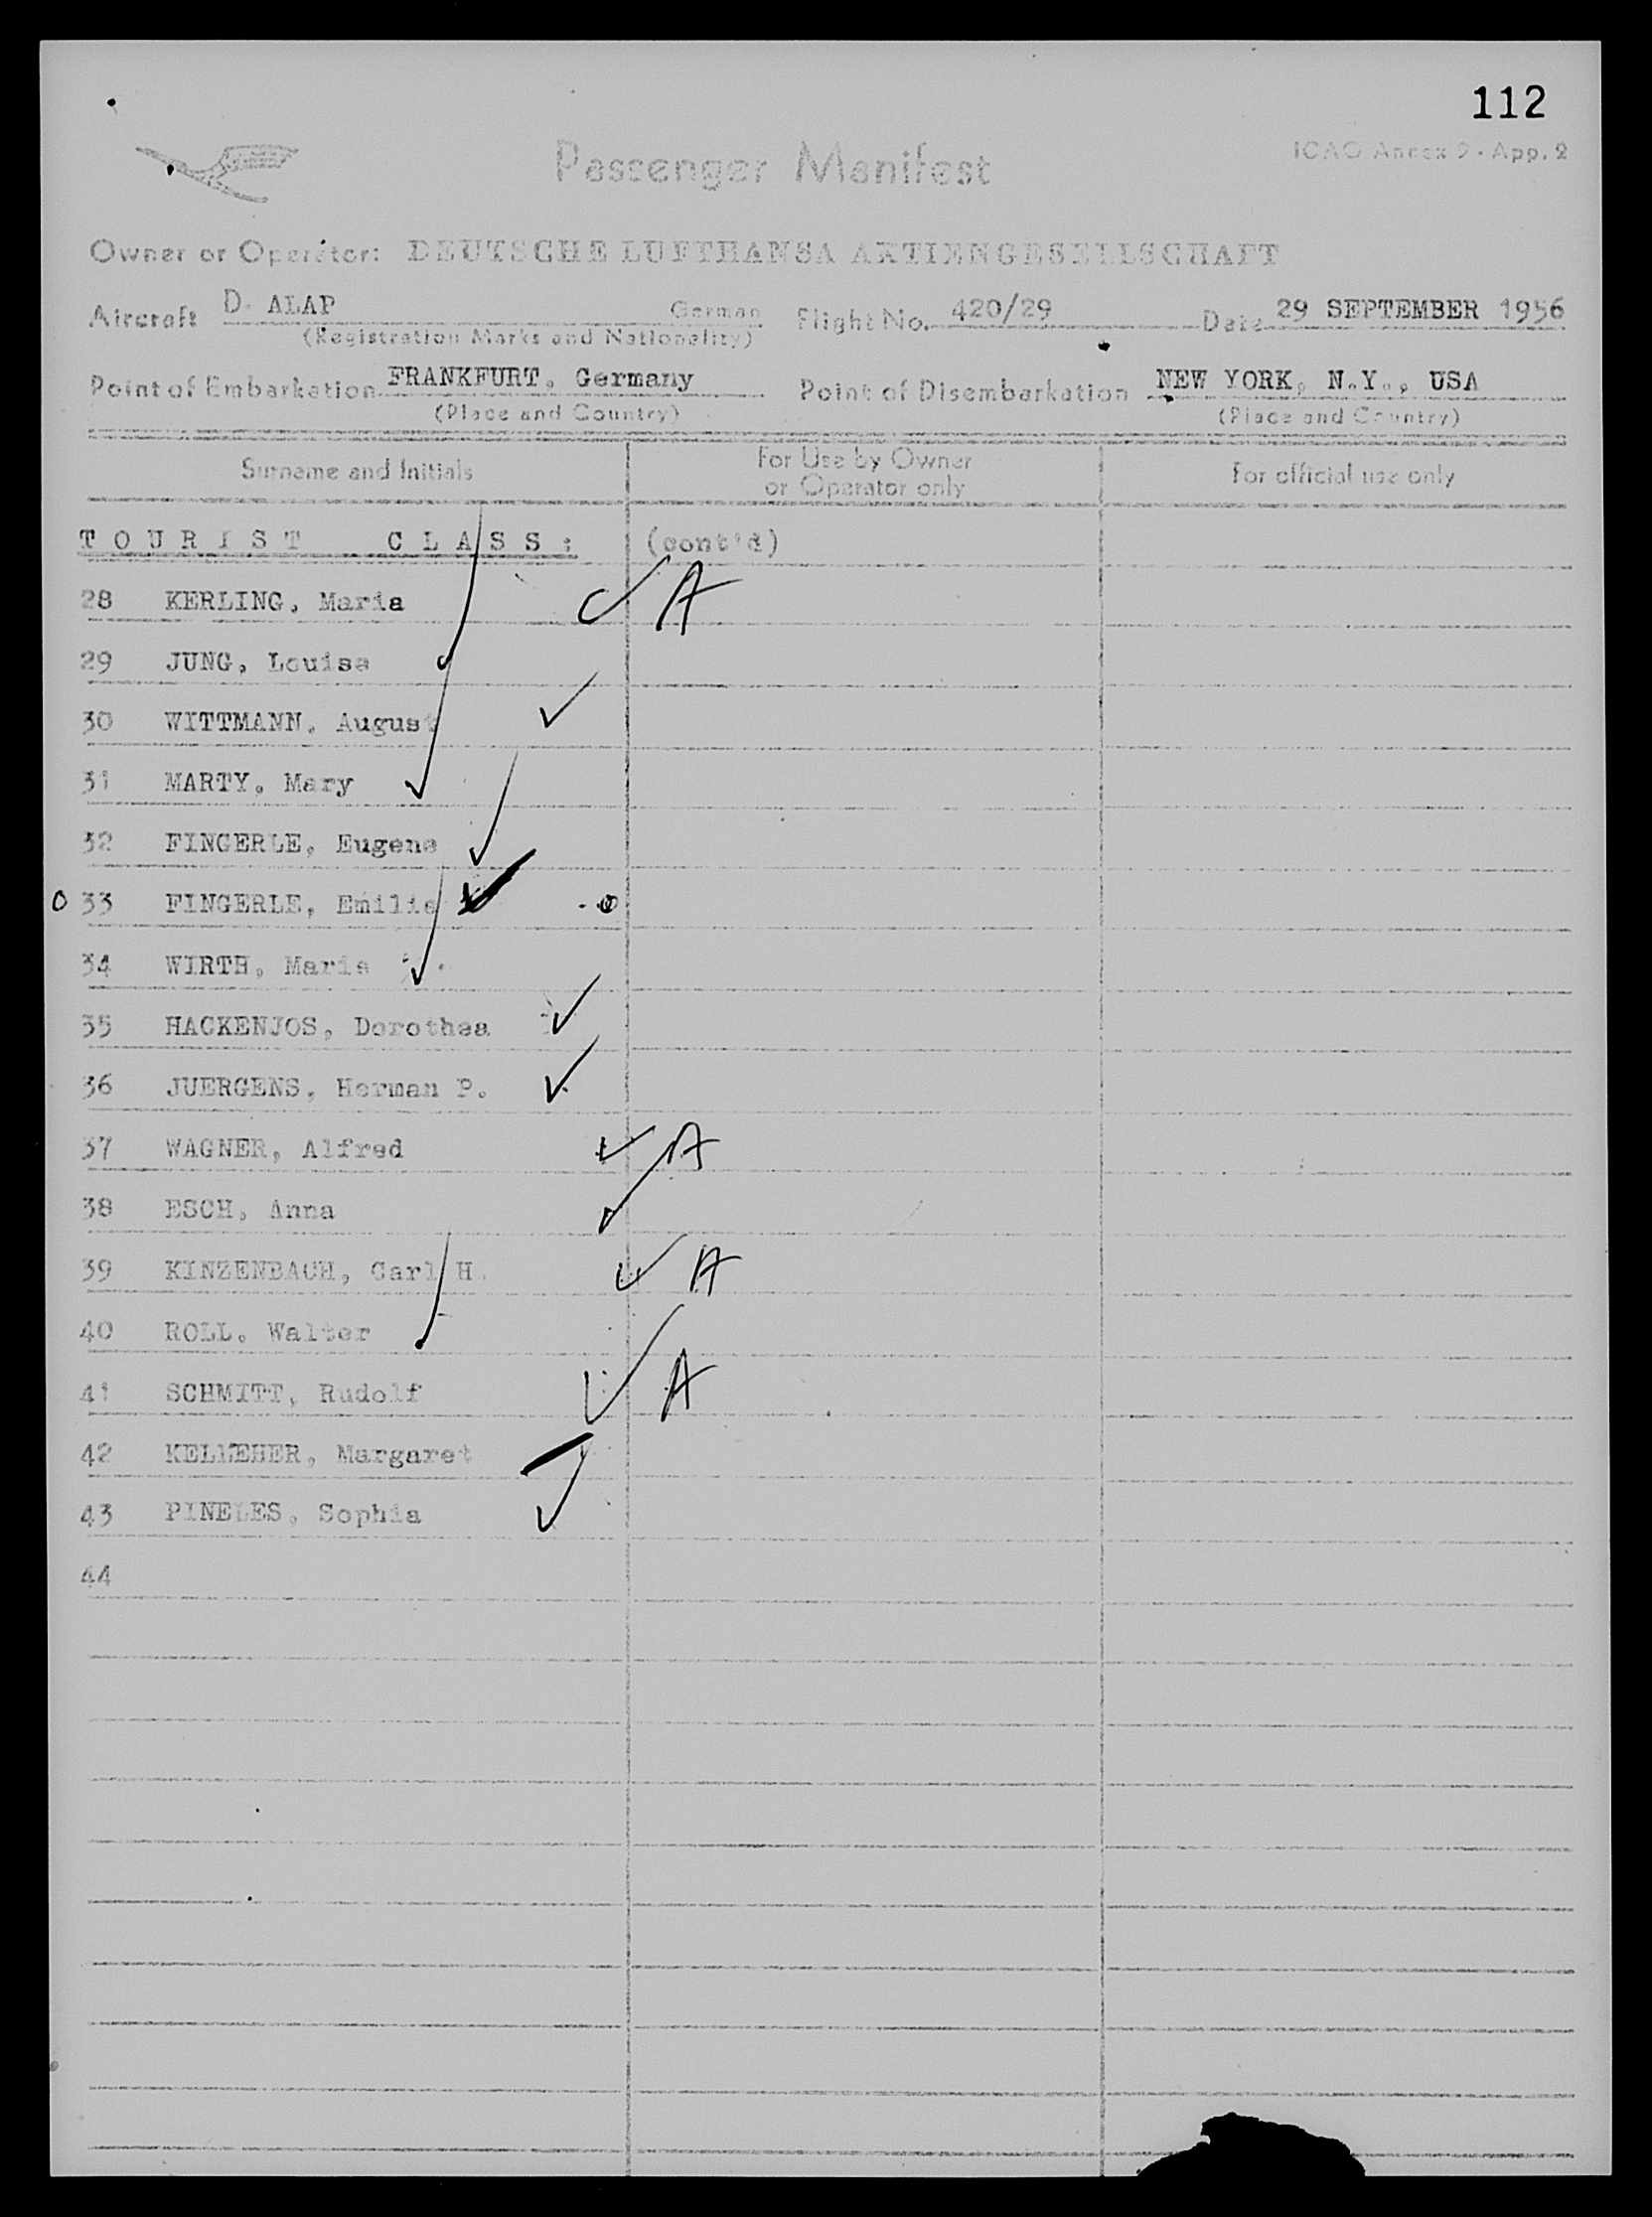 112
Passenger Manifest
ICAO Annex 9 - App. 2
Owner or Operator: DEUTSCHE LUFTHANSA AKTIENGESELLSCHAFT
Aircraft D- ALAP German Flight No. 420/29 Date 29 SEPTEMBER 1956
(Registration Marks and Nationality)
Point of Embarkation FRANKFURT, Germany Point of Disembarkation NEW YORK, N.Y., USA
(Place and Country) (Place and Country)
Surname and Initials For Use by Owner or Operator only For official use only
TOURIST CLASS: (cont'd)
28 KERLING, Maria A
29 JUNG, Louise
30 WITTMANN, August
31 MARTY, Mary
32 FINGERLE, Eugene
0 33 FINGERLE, Emilie
34 WIRTH, Maria
35 HACKENJOS, Dorothea
36 JUERGENS, Herman P.
37 WAGNER, Alfred A
38 ESCH, Anna
39 KINZENBACH, Carl H. A
40 ROLL, Walter
41 SCHMITT, Rudolf A
42 KELLEHER, Margaret
43 PINELES, Sophia
44